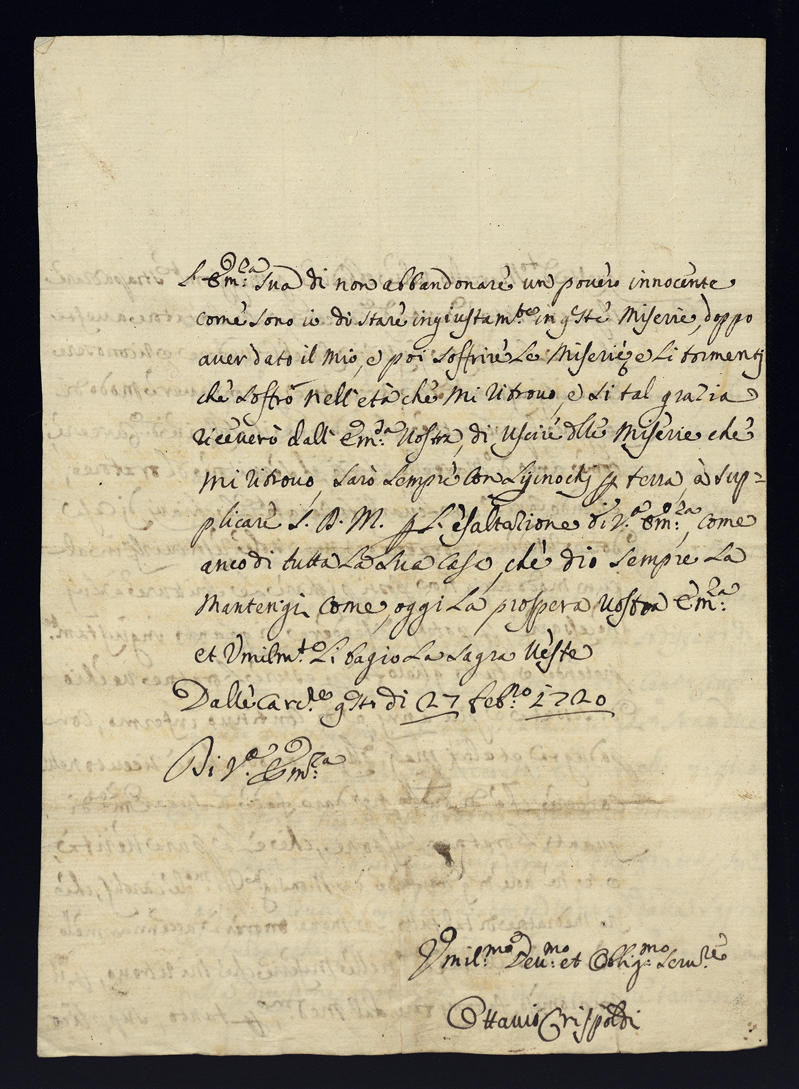 L'Em:za Sua di non abbandonare un povero innocente
come sono io di stare ingiustam:te in q.ste Miserie, doppo
aver dato il mio, e poi soffrire le Miserie, e li tormentj
che soffro nell'età che mi ritrovo, e si tal grazia
riceverò dall'Em:za Vostra, di uscire d.lle Miserie che
mi ritrovo, sarò sempre con terra, à sup=
plicare S. D. M. p L'esaltazione di V.a Em:za, come
anco di tutta La Sua Casa, che dio sempre La
Mantenghi come, oggi La prospera Vostra Em:za
et Umilm.te Li bagio La Sagra Veste
Dalle Carc.re q.sto di 27 feb:ro 1720
Di V.a Em:za
Umil:mo Deu:mo et Oblig:mo Seru:re
Ottavio Crispoldi